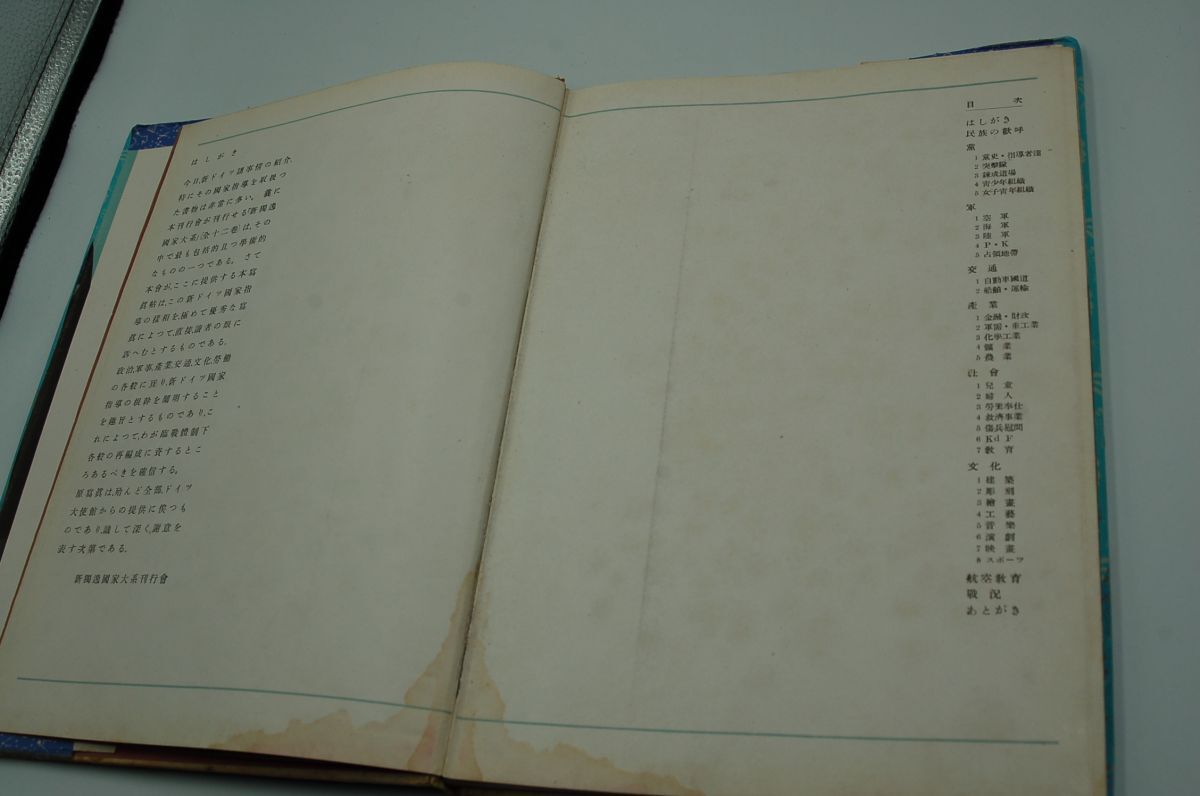 はしがき
今日、新ドイツ諸事情の紹介、
特にその國家指導を取扱つ
た書物は非常に多い。曩に
本刊行會が刊行せる『新獨逸
國家大系』(全十二卷)は、その
中で最も包括的且つ學術的
なものの一つである。さて
本會が、ここに提供する本寫
眞帖は、この新ドイツ國家指
導の樣相を、極めて優秀な寫
眞によつて、直接、讀者の眼に
訴へむとするものである。
政治、軍事、產業、交通、文化、勞働
の各般に亙り、新ドイツ國家
指導の根幹を闡明すること
を趣旨とするものであり、こ
れによつて、わが臨戰體制下
各般の再編成に資するとこ
ろあるべきを確信する。
原寫眞は、殆んど全部、ドイツ
大使館からの提供に俟つも
のであり、識して深く、謝意を
表す次第である。
新獨逸國家大系刊行會
目次
はしがき
民族の歡呼
黨
1 黨史・指導者達
2 突擊隊
3 鍊成道場
4 靑少年組織
5 女子靑年組織
軍
1 空軍
2 海軍
3 陸軍
4 P・K
5 占領地帶
交通
1 自動車國道
2 船舶・運輸
產業
1 金融・財政
2 軍需・重工業
3 化學工業
4 鑛業
5 農業
社會
1 兒童
2 婦人
3 勞働奉仕
4 救濟事業
5 傷兵慰問
6 KdF
7 敎育
文化
1 建築
2 彫刻
3 繪畫
4 工藝
5 音樂
6 演劇
7 映畫
8 スポーツ
航空敎育
戰況
あとがき